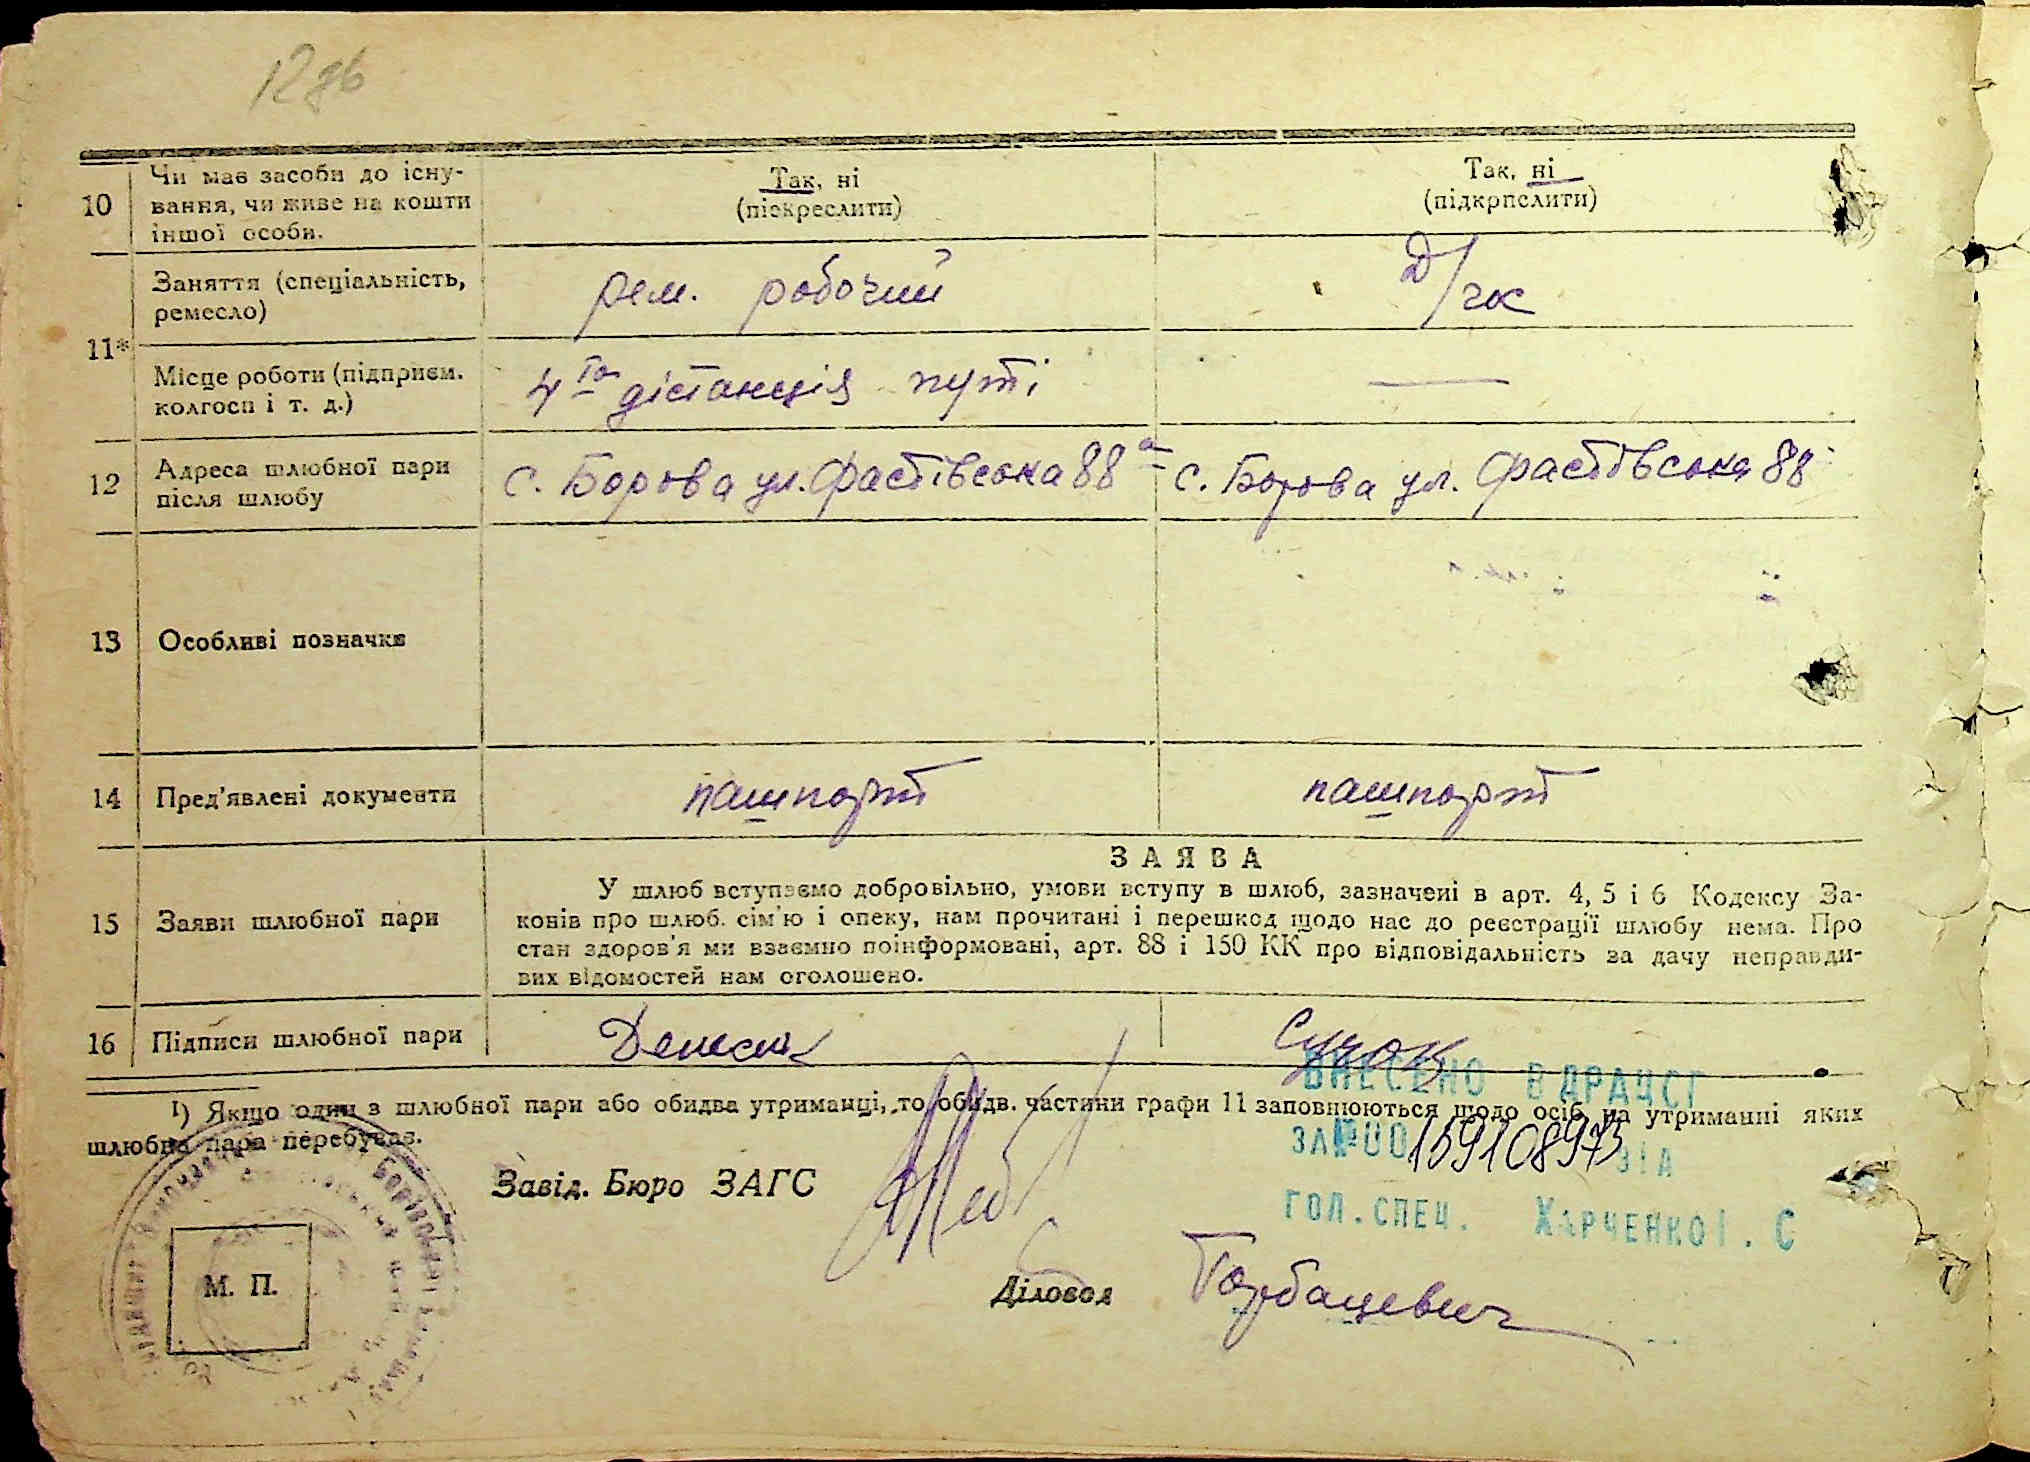 12 зв
10
Чи має засоби до існу-
вання, чи живе на кошти
іншої особи.
Так, ні
(підкреслити)
Так, ні
(підкрпслити)
11*
Заняття (спеціальність,
ремесло)
рем. робочий
Д/гос
Місце роботи (підприєм.
колгосп і т. д.)
4та дістанція путі
—
12
Адреса шлюбної пари
після шлюбу
с. Борова ул. Фастівська 88а
с. Борова ул. Фастівська 88
13
Особливі позначки
14
Пред'явлені документи
пашпорт
пашпорт
15
Заяви шлюбної пари
ЗАЯВА
У шлюб вступаємо добровільно, умови вступу в шлюб, зазначені в арт. 4, 5 і 6 Кодексу За-
конів про шлюб. сім'ю і опеку, нам прочитані і перешкод щодо нас до реєстрації шлюбу нема. Про
стан здоров'я ми взаємно поінформовані, арт. 88 і 150 КК про відповідальність за дачу неправди-
вих відомостей нам оголошено.
16
Підписи шлюбної пари
ВНЕСЕНО В ДРАЦСГ
1) Якщо один з шлюбної пари або обидва утриманці, то обидв. частини графи 11 заповнюються щодо осіб, на утриманні яких
шлюбна пара перебуває.
ЗА №00159108973 ВІД
Завід. Бюро ЗАГС
ГОЛ.СПЕЦ. ХАРЧЕНКО І. С
М. П.
Діловод
Горбацевич